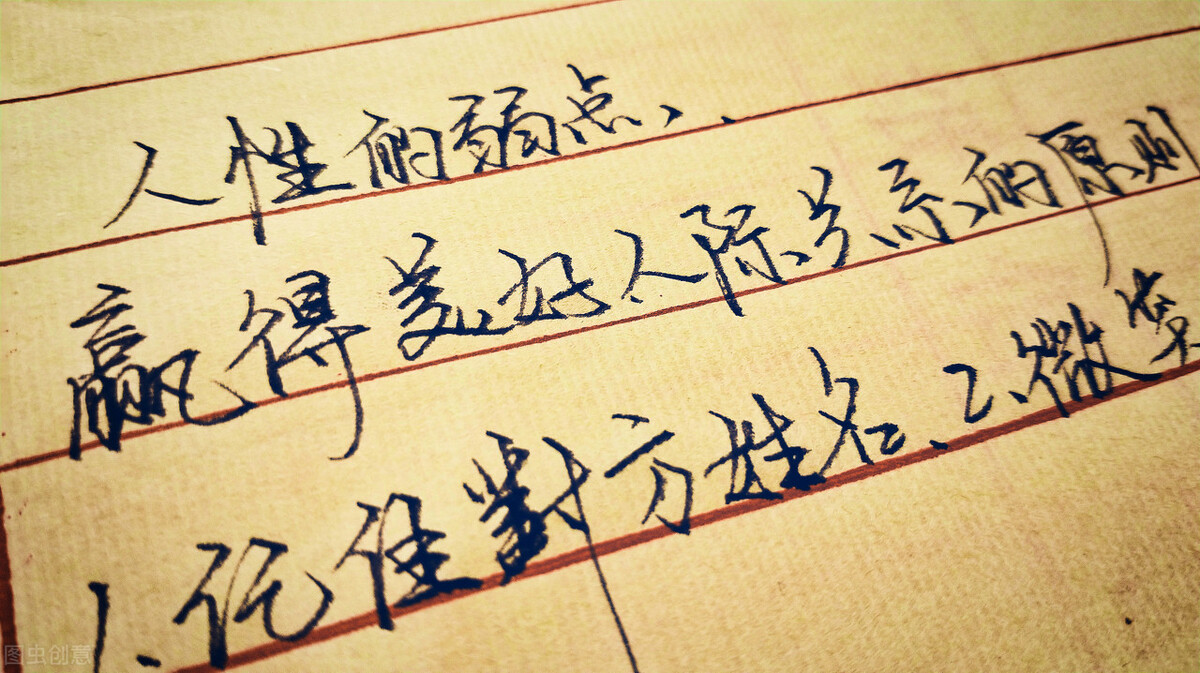 人性的弱点、.
赢得美好人际关系的原则
1.记住對方姓名、2、微笑
图虫创意